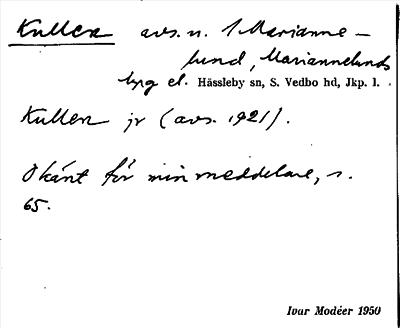 Kullen avs. n. 1 Marianne-
lund, Mariannelunds
kpg el. Hässleby sn, S. Vedbo hd, Jkp. l.
Kullen jr (avs. 1921).
Okänt för min meddelare, s.
65.
Ivar Modéer 1950